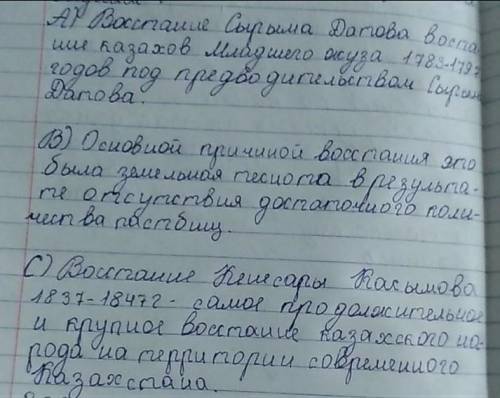 А) Восстание Сырыма Датова воста-
ние казахов Младшего жуза 1783-1797
годов под предводительством Сырыма
Датова.
В) Основной причиной восстания это
была земельная теснота в результа-
те отсутствия достаточного коли-
чества пастбищ.
С) Восстание Кенесары Касымова
1837-1847г- самое продолжительное
и крупное восстание казахского на-
рода на территории современного
Казахстана.